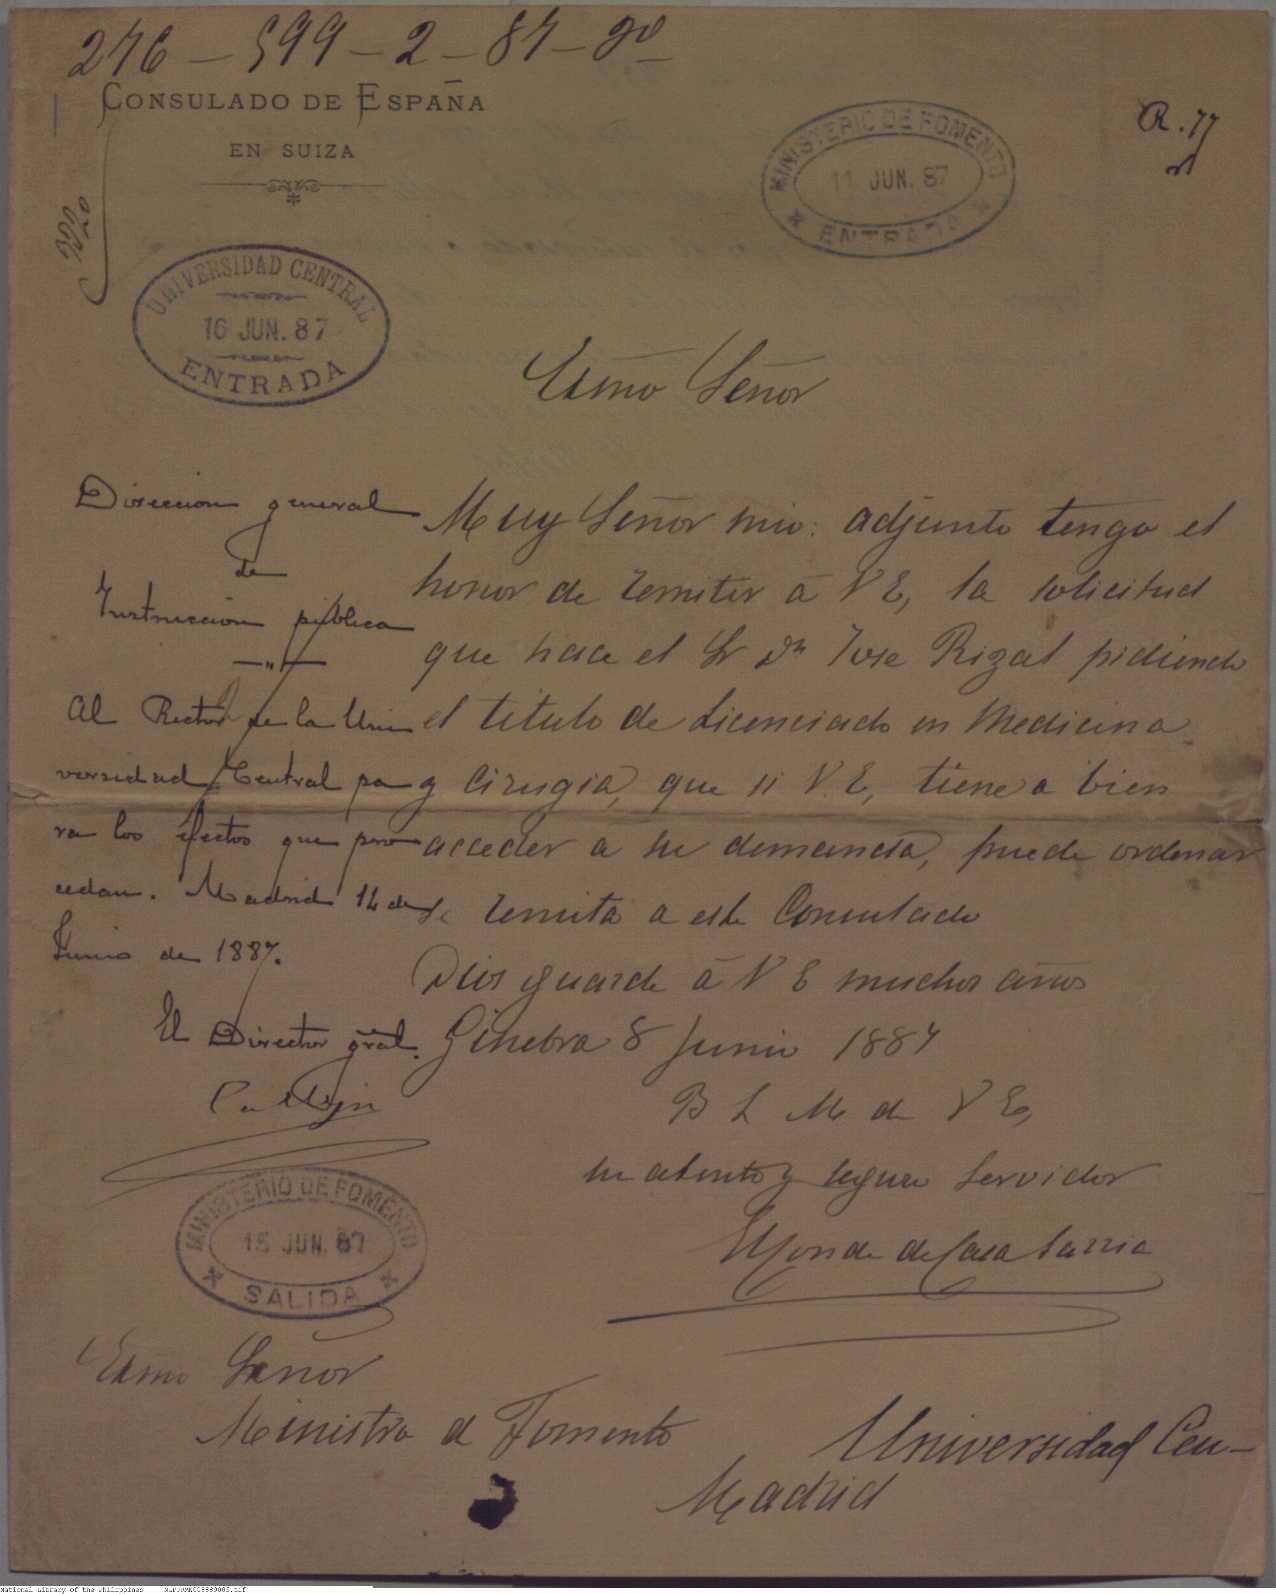 276 - 599 - 2 - 87 - 
CONSULADO DE ESPAÑA
EN SUIZA
R. 77
MINISTERIO DE FOMENTO
11 JUN. 87
ENTRADA
UNIVERSIDAD CENTRAL
16 JUN. 87
ENTRADA
Exmo Señor
Muy Señor mio: adjunto tengo el
honor de remitir á V E, la solicitud
que hace el Sr Dn Jose Rizal pidiendo
el titulo de Licenciado en Medicina
y Cirugia, que si V. E, tiene a bien
acceder a su demanda, puede ordenar
se remita a este Consulado
Dios guarde á V E muchos años
Ginebra 8 Junio 1887
B L M de V E,
su atento y seguro servidor
El Conde de Casa Sarria
Direccion general
de
Instruccion pública
Al Rector de la Uni
versidad Central pa
ra los efectos que pro
cedan. Madrid 14 de
Junio de 1887.
El Director gral.
MINISTERIO DE FOMENTO
15 JUN. 87
SALIDA
Exmo Señor
Ministro de Fomento
Madrid
Universidad Cen-
National Library of the Philippines